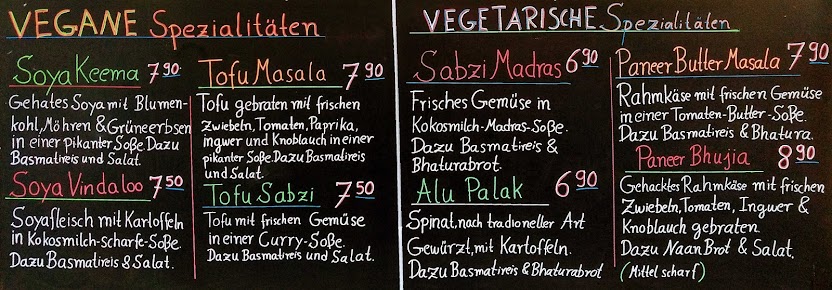 VEGANE Spezialitäten
Soya Keema 7 90
Gehates Soya mit Blumen-
kohl, Möhren & Grüneerbsen
in einer pikanter Soße. Dazu
Basmatireis und Salat.
Soya Vindaloo 7 50
Soyafleisch mit Kartoffeln
in Kokosmilch-scharfe-Soße.
Dazu Basmatireis & Salat.
Tofu Masala 7 90
Tofu gebraten mit frischen
Zwiebeln, Tomaten, Paprika,
ingwer und Knoblauch in einer
pikanter Soße. Dazu Basmatireis
und Salat.
Tofu Sabzi 7 50
Tofu mit frischen Gemüse
in einer Curry-Soße.
Dazu Basmatireis und Salat.
VEGETARISCHE Spezialitäten
Sabzi Madras 6 90
Frisches Gemüse in
Kokosmilch-Madras-Soße.
Dazu Basmatireis &
Bhaturabrot.
Alu Palak 6 90
Spinat, nach tradioneller Art
Gewürzt, mit Kartoffeln.
Dazu Basmatireis & Bhaturabrot
Paneer Butter Masala 7 90
Rahmkäse mit frischen Gemüse
in einer Tomaten-Butter-Soße.
Dazu Basmatireis & Bhatura.
Paneer Bhujia 8 90
Gehacktes Rahmkäse mit frischen
Zwiebeln, Tomaten, Ingwer &
Knoblauch gebraten.
Dazu Naan Brot & Salat.
(Mittel scharf)